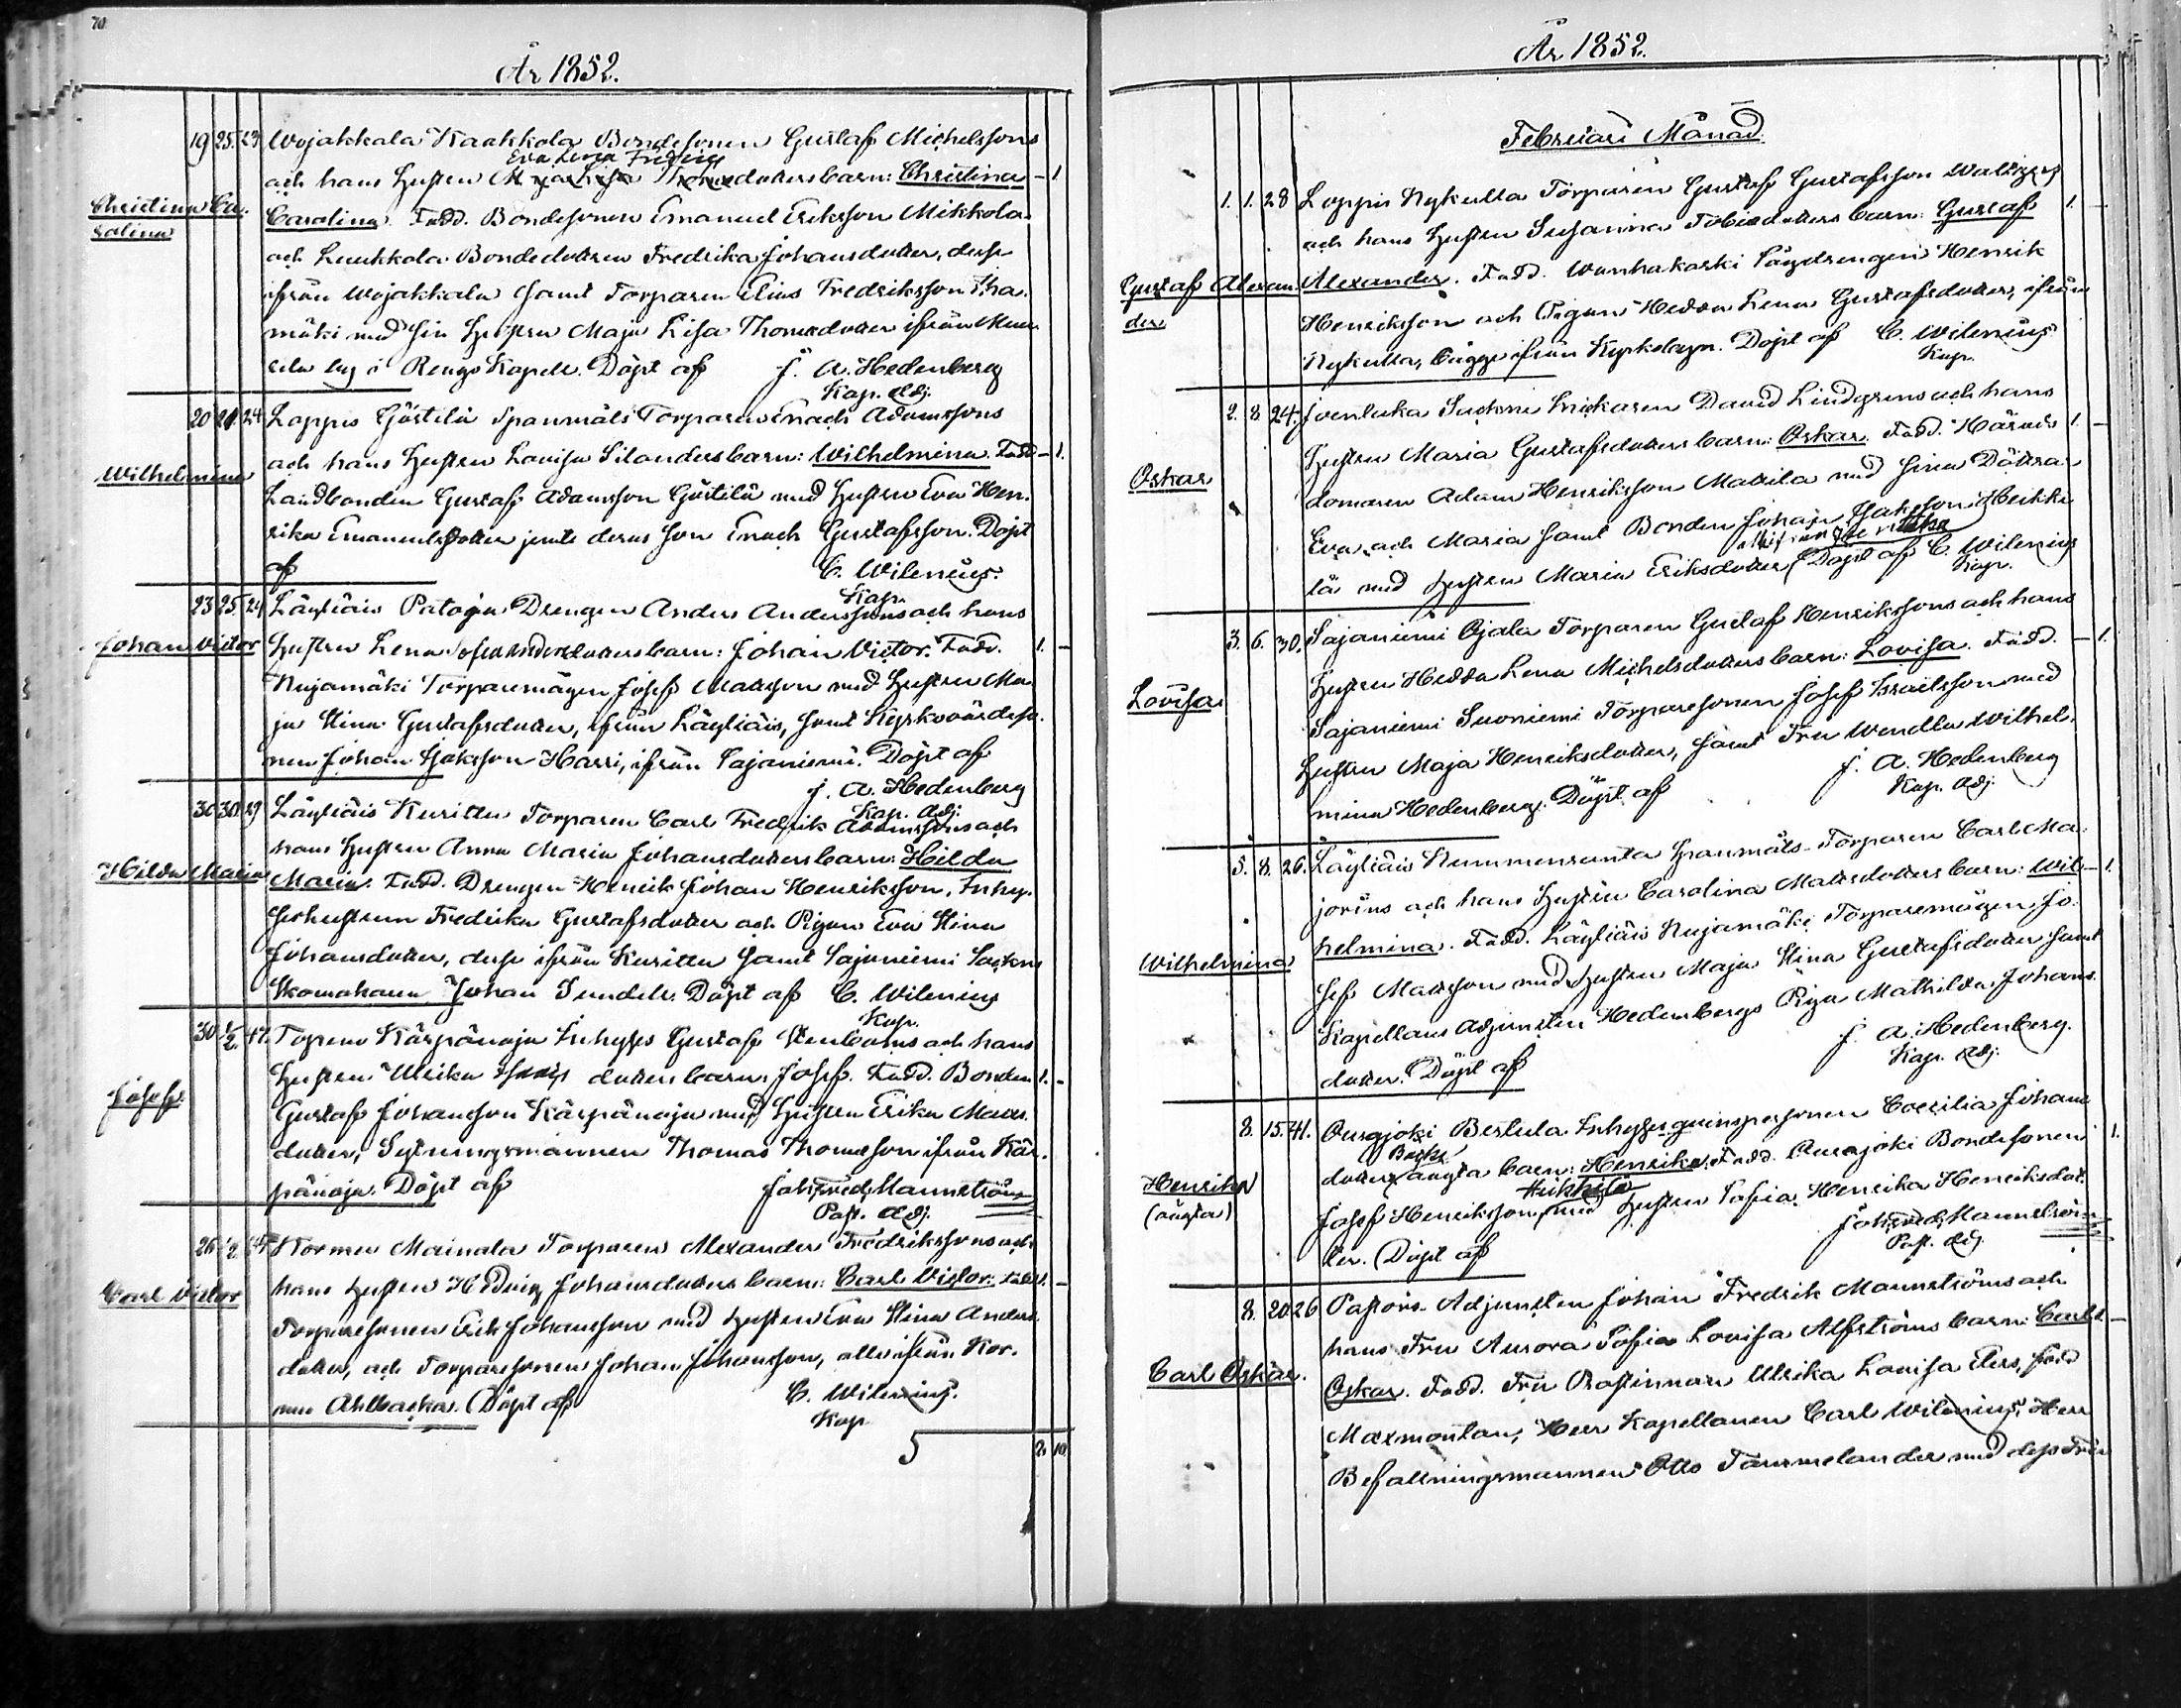 70
År 1852.
19 25. 23 Wojakkala Kaakkola Bondesonen Gustaf Michelssons
Eva Lovisa Fredrics
och hans Hustru Maja Lisa Thomedotters barn: Christina – 1
Christina Ca-
rolina
Carolina. Fadd. Bondesonen Emanuel Eriksson Mikkola
och Luukkola Bondedottren Fredrika Johansdotter, desse
ifrån Wojakkala samt Torparen Elias Fredriksson
mäki med sin Hustru Maja Lisa Thomedotter ifrån
by i Rengo Kapell. Döpt af J. A. Hedenberg
Kap. Adj.
20 21. 24 Loppis Göstilä Spannmåls Torparens Enoch Adamssons
och hans Hustru Lovisa Silanders barn: Wilhelmina. Fadd. – 1.
Wilhelmina
Landbonden Gustaf Adamsson Göstilä med Hustru Eva Hen-
rika Emanuelsdotter jemte deras son Enoch Gustafsson. Döpt
af C. Wilenius.
Kap.
23 25. 24 Läyliäis Patoja Drengen Anders Anderssons och hans
Johan Victor Hustru Lena Sofia Andersdotters barn: Johan Victor. Fadd. 1. –
Nujamäki Torparemågen Josef Matsson med Hustru Ma-
ja Stina Gustafsdotter, ifrån Läyliäis, samt Kyrkovärdeso-
nen Johan Isaksson Harri, ifrån Sajaniemi. Döpt af
J. A. Hedenberg
Kap. Adj.
30 30. 29 Läyliäis Kuritta Torparen Carl Fredrik Adamssons och
hans Hustru Anna Maria Johansdotters barn: Hilda
Hilda Maria Maria. Fadd. Drengen Henrik Johan Henriksson, Inhy-
seshustrun Fredrika Gustafsdotter och Pigan Eva Stina
Johansdotter, desse ifrån Kuritta samt Sajaniemi Sockne
Skomakaren Johan Sundell. Döpt af C. Wilenius
Kap.
30 1/2. 47. Topeno Kärpänoja Inhyses Gustaf Stenboms och hans
Hustru Ulrika dotters barn: Josef. Fadd. Bonden 1. –
Josef.
Gustaf Johansson Kärpänoja med Hustru Erika Mats-
dotter, Sytningsmannen Thomas Thomasson ifrån Kär-
pänoja. Döpt af Joh. Fred. Mannström
Past. Adj.
26 1/2. Kormu Mainala Torparens Alexander Fredrikssons och
hans Hustru Hedvig Johansdotters barn: Carl Victor. Fadd. 1. –
Carl Victor
Torparesonen Erik Johansson med Hustru Eva Stina Anders-
dotter, och Torparesonen Johan Johansson, alla ifrån Kor-
mu Ahlbacka. Döpt af C. Wilenius.
Kap.
2. 10.
År 1852.
Februari Månad.
1. 1. 28 Loppis Nykulla Torparen Gustaf Gustafsson
och hans Hustru Susanna Tobiædotters barn: Gustaf 1. –
Gustaf Alexan-
der
Alexander. Fadd. Wanhakoski Lägdrengen Henrik
Henriksson och Pigan Hedda Lena Gustafsdotter, ifrån
Nykulla, bägge ifrån Kyrkobyn. Döpt af C. Wilenius
Kap.
2. 8 24. Joentaka Sockne Snickaren David Lindgrens och hans
Hustru Maria Gustafsdotters barn: Oskar. Fadd. Härads- 1. –
Oskar
domaren Adam Henriksson Mattila med sina Döttra
Eva och Maria samt Bonden Johan Isaksson Heikki-
alla ifrån Joentaka
lä med Hustru Maria Eriksdotter. Döpt af C. Wilenius
Kap.
3. 6. 30. Sajaniemi Ojala Torparen Gustaf Henrikssons och hans
Hustru Hedda Lena Michelsdotters barn: Lovisa. Fadd. – 1.
Lovisa
Sajaniemi Suoniemi Torparesonen Josef Israelsson med
Hustru Maja Henriksdotter, samt Fru Wendla Wilhel-
mina Hedenberg. Döpt af J. A. Hedenberg
Kap. Adj.
5. 8. 26. Läyliäis Nummenranta Spanmåls-Torparen Carl Ma-
jorins och hans Hustru Carolina Matsdotters barn: Wil- – 1.
Wilhelmina
helmina. Fadd. Läyliäis Nujamäki Torparemågen Jo-
sef Matsson med Hustru Maja Stina Gustafsdotter samt
Kapellans Adjuncten Hedenbergs Piga Mathilda Johans-
dotter. Döpt af J. A. Hedenberg.
Kap. Adj.
8. 15. 41. Ourajoki Beslula Inhysesqvinspersonen Coecilia Johans
dotters oägta barn: Henrika. Fadd. Ourajoki Bondesonen 1.
Henrika
(oägta)
Josef Henriksson med Hustru Sofia Henrika Henriksdot-
ter. Döpt af Joh. Fred. Mannström
Past. Adj.
8. 20 26 Pastors Adjuncten Johan Fredrik Mannströms och
hans Fru Aurora Sofia Lovisa Alfströms barn: Carl 1. –
Carl Oskar. Oskar. Fadd. Fru Prostinnan Ulrika Lovisa Elers, född
Maxmontan, Herr Kapellanen Carl Wilenius, Herr
Befallningsmannen Otto Tammelander med dess Fru